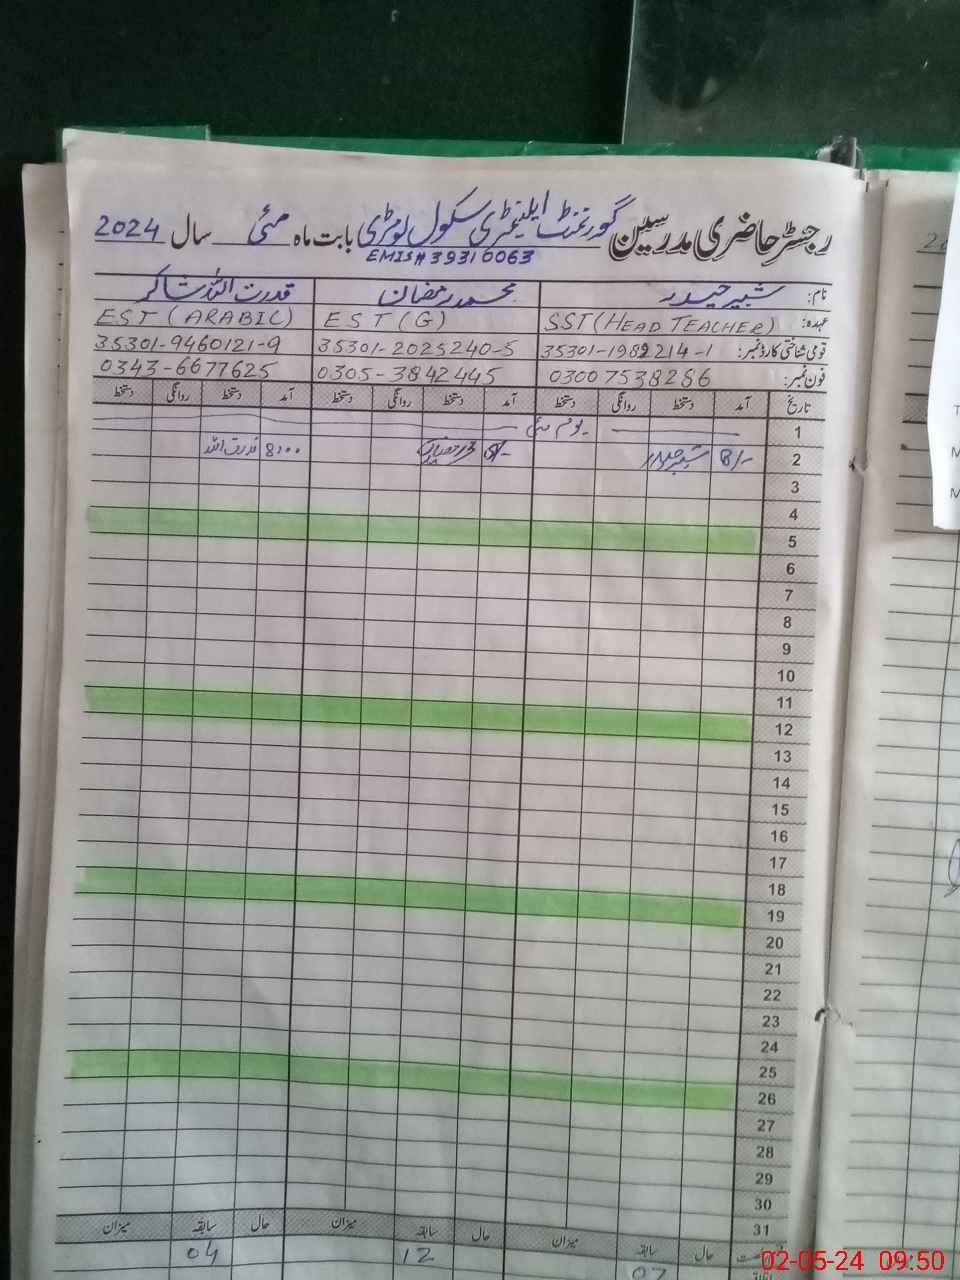 رجسٹر حاضری مدرسین گورنمنٹ ایلیمنٹری سکول لومڑی بابت ماہ مئی سال 2024
EMIS# 39310063
نام: شبیر حیدر محمد رمضان قدرت اللہ شاکر
عہدہ: SST (HEAD TEACHER) EST (G) EST (ARABIC)
قومی شناختی کارڈ نمبر: 35301-1982214-1 35301-2025240-5 35301-9460121-9
فون نمبر: 03007538286 0305-3842445 0343-6677625
تاریخ آمد دستخط روانگی دستخط آمد دستخط روانگی دستخط آمد دستخط روانگی دستخط
1 یوم مئی
2 8/- شبیر حیدر 8/- محمد رمضان 8:00 قدرت اللہ
3
4
5
6
7
8
9
10
11
12
13
14
15
16
17
18
19
20
21
22
23
24
25
26
27
28
29
30
31
حال سابقہ میزان حال سابقہ میزان حال سابقہ میزان
07 12 04
02-05-24 09:50